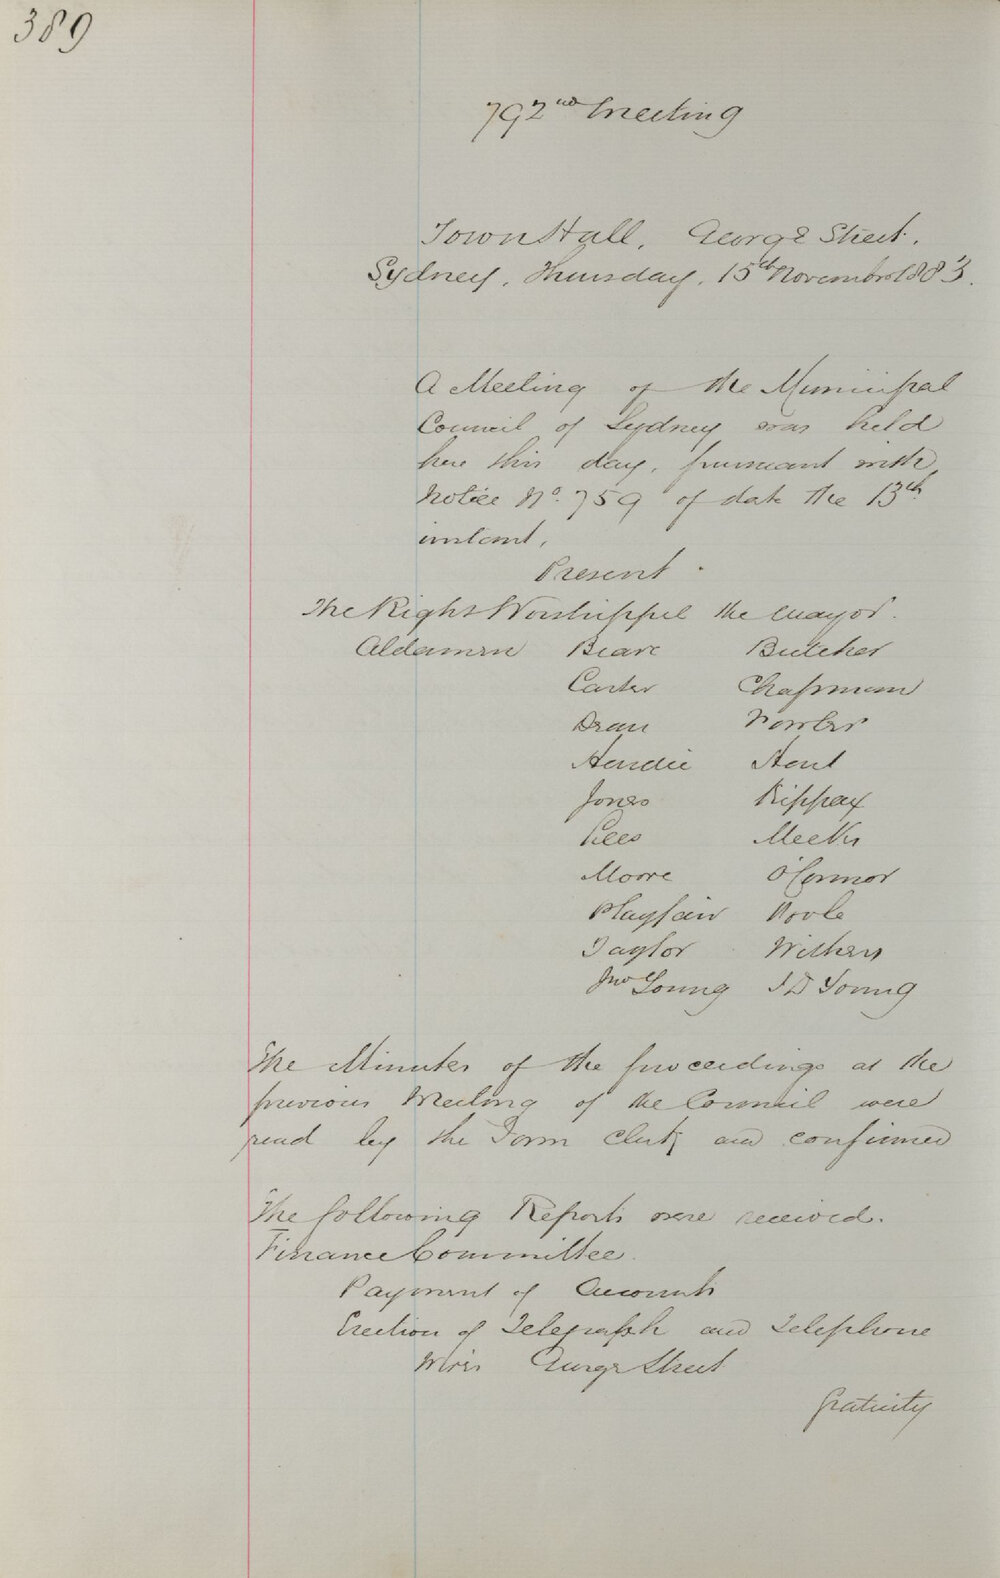 389
792nd Meeting
Town Hall, George Street.
Sydney, Thursday, 15th November 1883.
A Meeting of the Municipal
Council of Sydney was held
here this day, pursuant with
Notice No. 759 of date the 13th
instant,
Present.
The Right Worshipful the Mayor.
Aldermen Beare Butcher
Carter Chapman
Dean Fowler
Hardie Hart
Jones Kippax
Lees Meeks
Moore O'Connor
Playfair Poole
Taylor Withers
Jno Young J D Young
The Minutes of the proceedings at the
previous Meeting of the Council were
read by the Town Clerk and confirmed
The following Reports were received.
Finance Committee.
Payment of Accounts
Erection of Telegraph and Telephone
Wires George Street
Gratuity